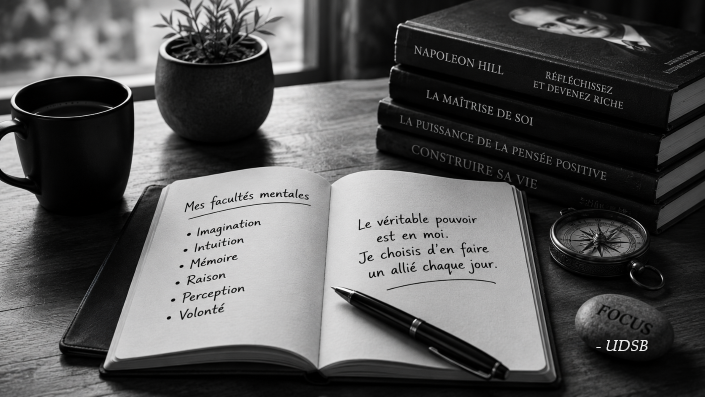 NAPOLEON HILL
RÉFLÉCHISSEZ
ET DEVENEZ RICHE
LA MAÎTRISE DE SOI
LA PUISSANCE DE LA PENSÉE POSITIVE
CONSTRUIRE SA VIE
Mes facultés mentales
• Imagination
• Intuition
• Mémoire
• Raison
• Perception
• Volonté
Le véritable pouvoir
est en moi.
Je choisis d'en faire
un allié chaque jour.
FOCUS
- UDSB